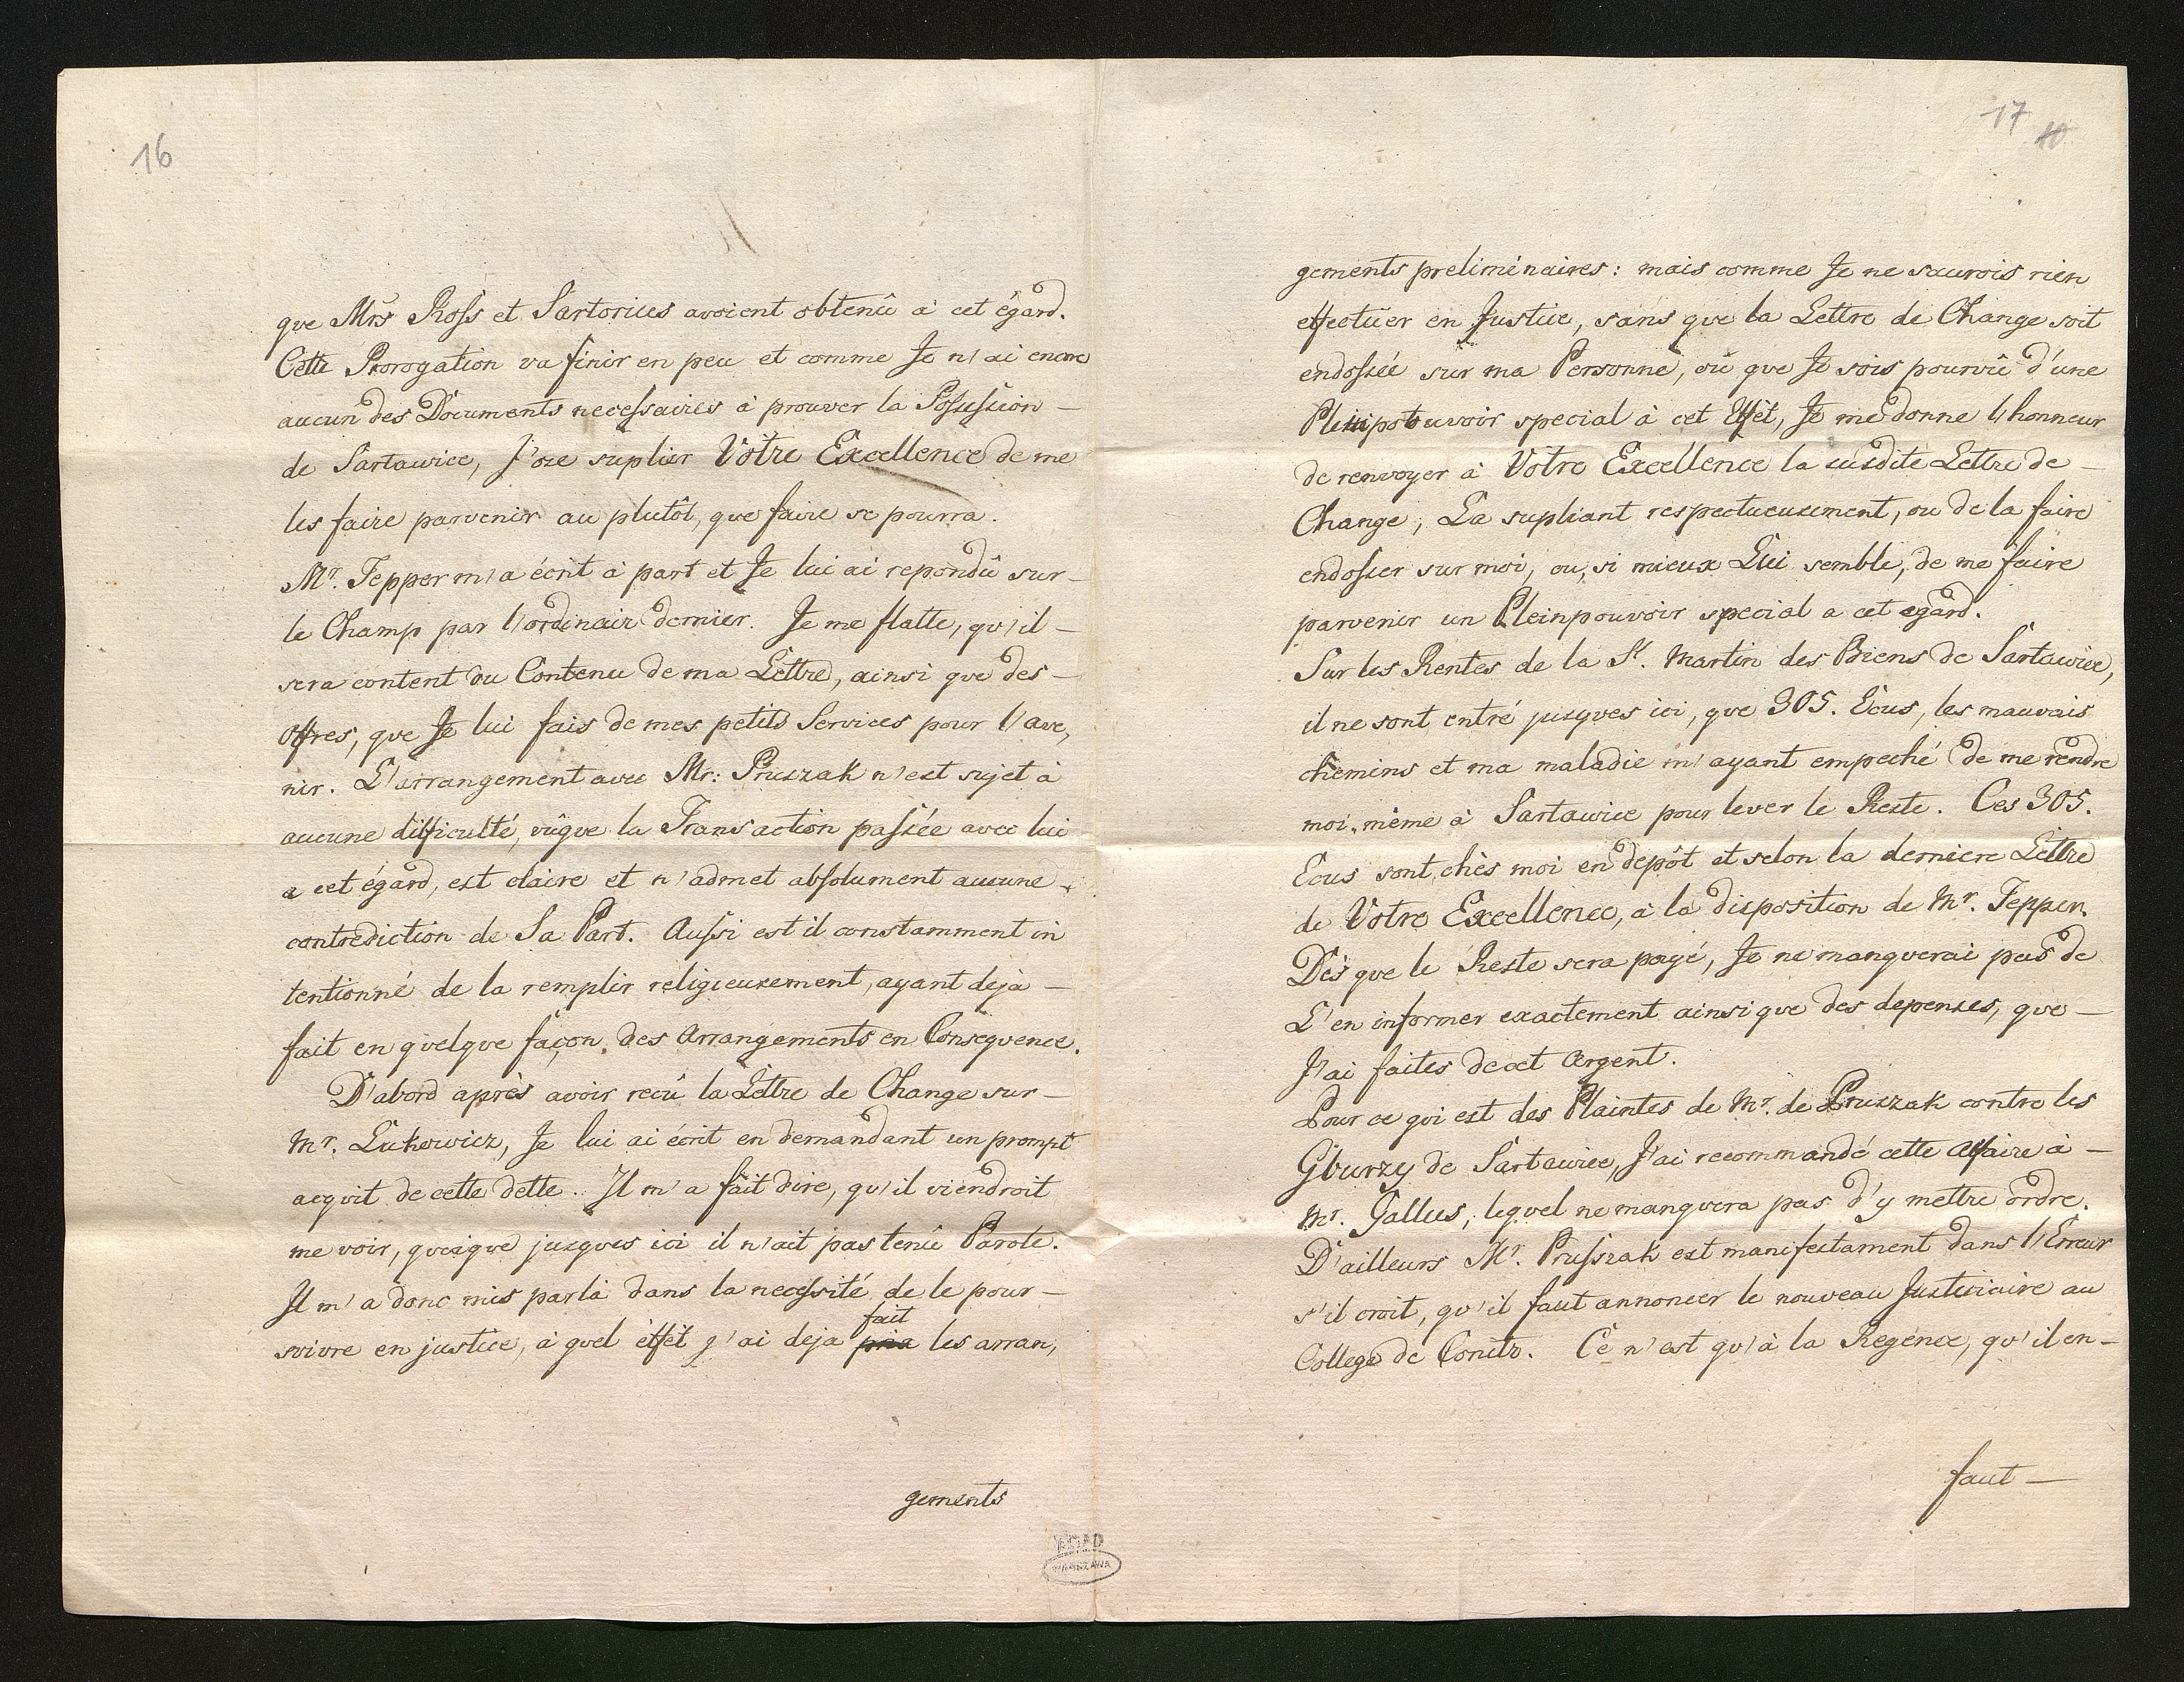 16
que Mrs Ross et Sartorius avoient obtenû à cet égard.
Cette Prorogation va finir en peu et comme Je n'ai encore
aucun des Documents necessaires à prouver la Possession –
de Sartawice, J'ose suplier Votre Excellence de me
les faire parvenir au plutôt, que faire se pourra.
Mr. Tepper m'a écrit à part et Je lui ai repondû sur-
le Champ par l'ordinair dernier. Je me flatte, qu'il –
sera content du Contenu de ma Lettre, ainsi que des –
offres, que Je lui fais de mes petits Services pour l'ave,
nir. L'arrangement avec Mr: Pruszak n'est sujet à
aucune difficulté, vûque la Transaction passée avec lui
a cet égard, est claire et n'admet absolument aucune –
contrediction de Sa Part. Aussi est il constamment in
tentionné de la remplir religieusement, ayant deja –
fait en quelque façon des Arrangements en Consequence.
D'abord après avoir recû la Lettre de Change sur –
Mr. Lukowicz, Je lui ai écrit en demandant un prompt
acquit de cette dette. Il m'a fait dire, qu'il viendroit
me voir, quoique jusques ici il n'ait pas tenû Parole.
Il m'a donc mis parlà dans la necessité de le pour –
fait
suivre en justice, à quel éffét j'ai deja pris les arran,
gements
17
10
gements preliminaires: mais comme Je ne saurois rien
effectuer en Justice, sans que la Lettre de Change soit
endossée sur ma Personne, où que Je sois pourvû d'une
Pleinpouvoir special à cet Effét, Je me donne l'honneur
de renvoyer à Votre Excellence la susdite Lettre de –
Change, La supliant respectueusement, ou de la faire
endosser sur moi, ou, si mieux Lui semble, de me faire
parvenir un Pleinpouvoir special a cet egard.
Sur les Rentes de la St. Martin des Biens de Sartawice,
il ne sont entré jusques ici, que 305. Ecus, les mauvais
chemins et ma maladie m'ayant empeché de me rendre
moi-même à Sartawice pour lever le Reste. Ces 305.
Ecus sont chès moi en depôt et selon la derniere Lettre
de Votre Excellence, à la disposition de Mr. Tepper.
Dès que le Reste sera payé, Je ne manquerai pas de
L'en informer exactement ainsi que des depenses, que –
J'ai faites de cet Argent.
Pour ce qui est des Plaintes de Mr. de Pruszak contre les
Gburzy de Sartawice, J'ai recommandé cette Affaire à –
Mr. Gallus, lequel ne manquera pas d'y mettre ordre.
D'ailleurs Mr. Prusszak est manifestament dans l'Erreur
s'il croit, qu'il faut annoncer le nouveau Justiciaire au
College de Conitz. Ce n'est qu'à la Regence, qu'il en –
faut –
AGAD
WARSZAWA